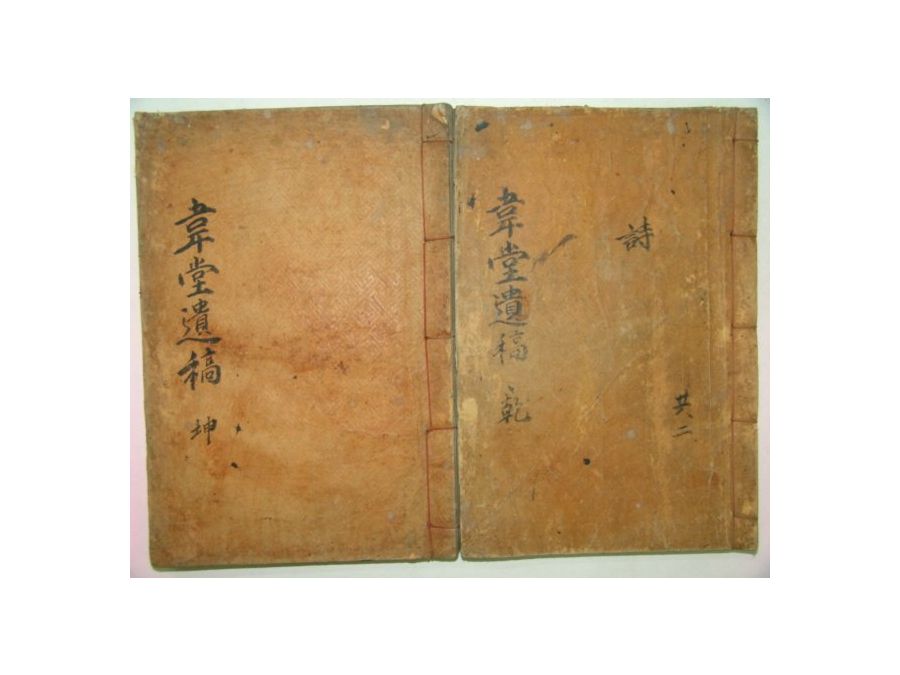 詩
共二
韋堂遺稿 乾
韋堂遺稿 坤